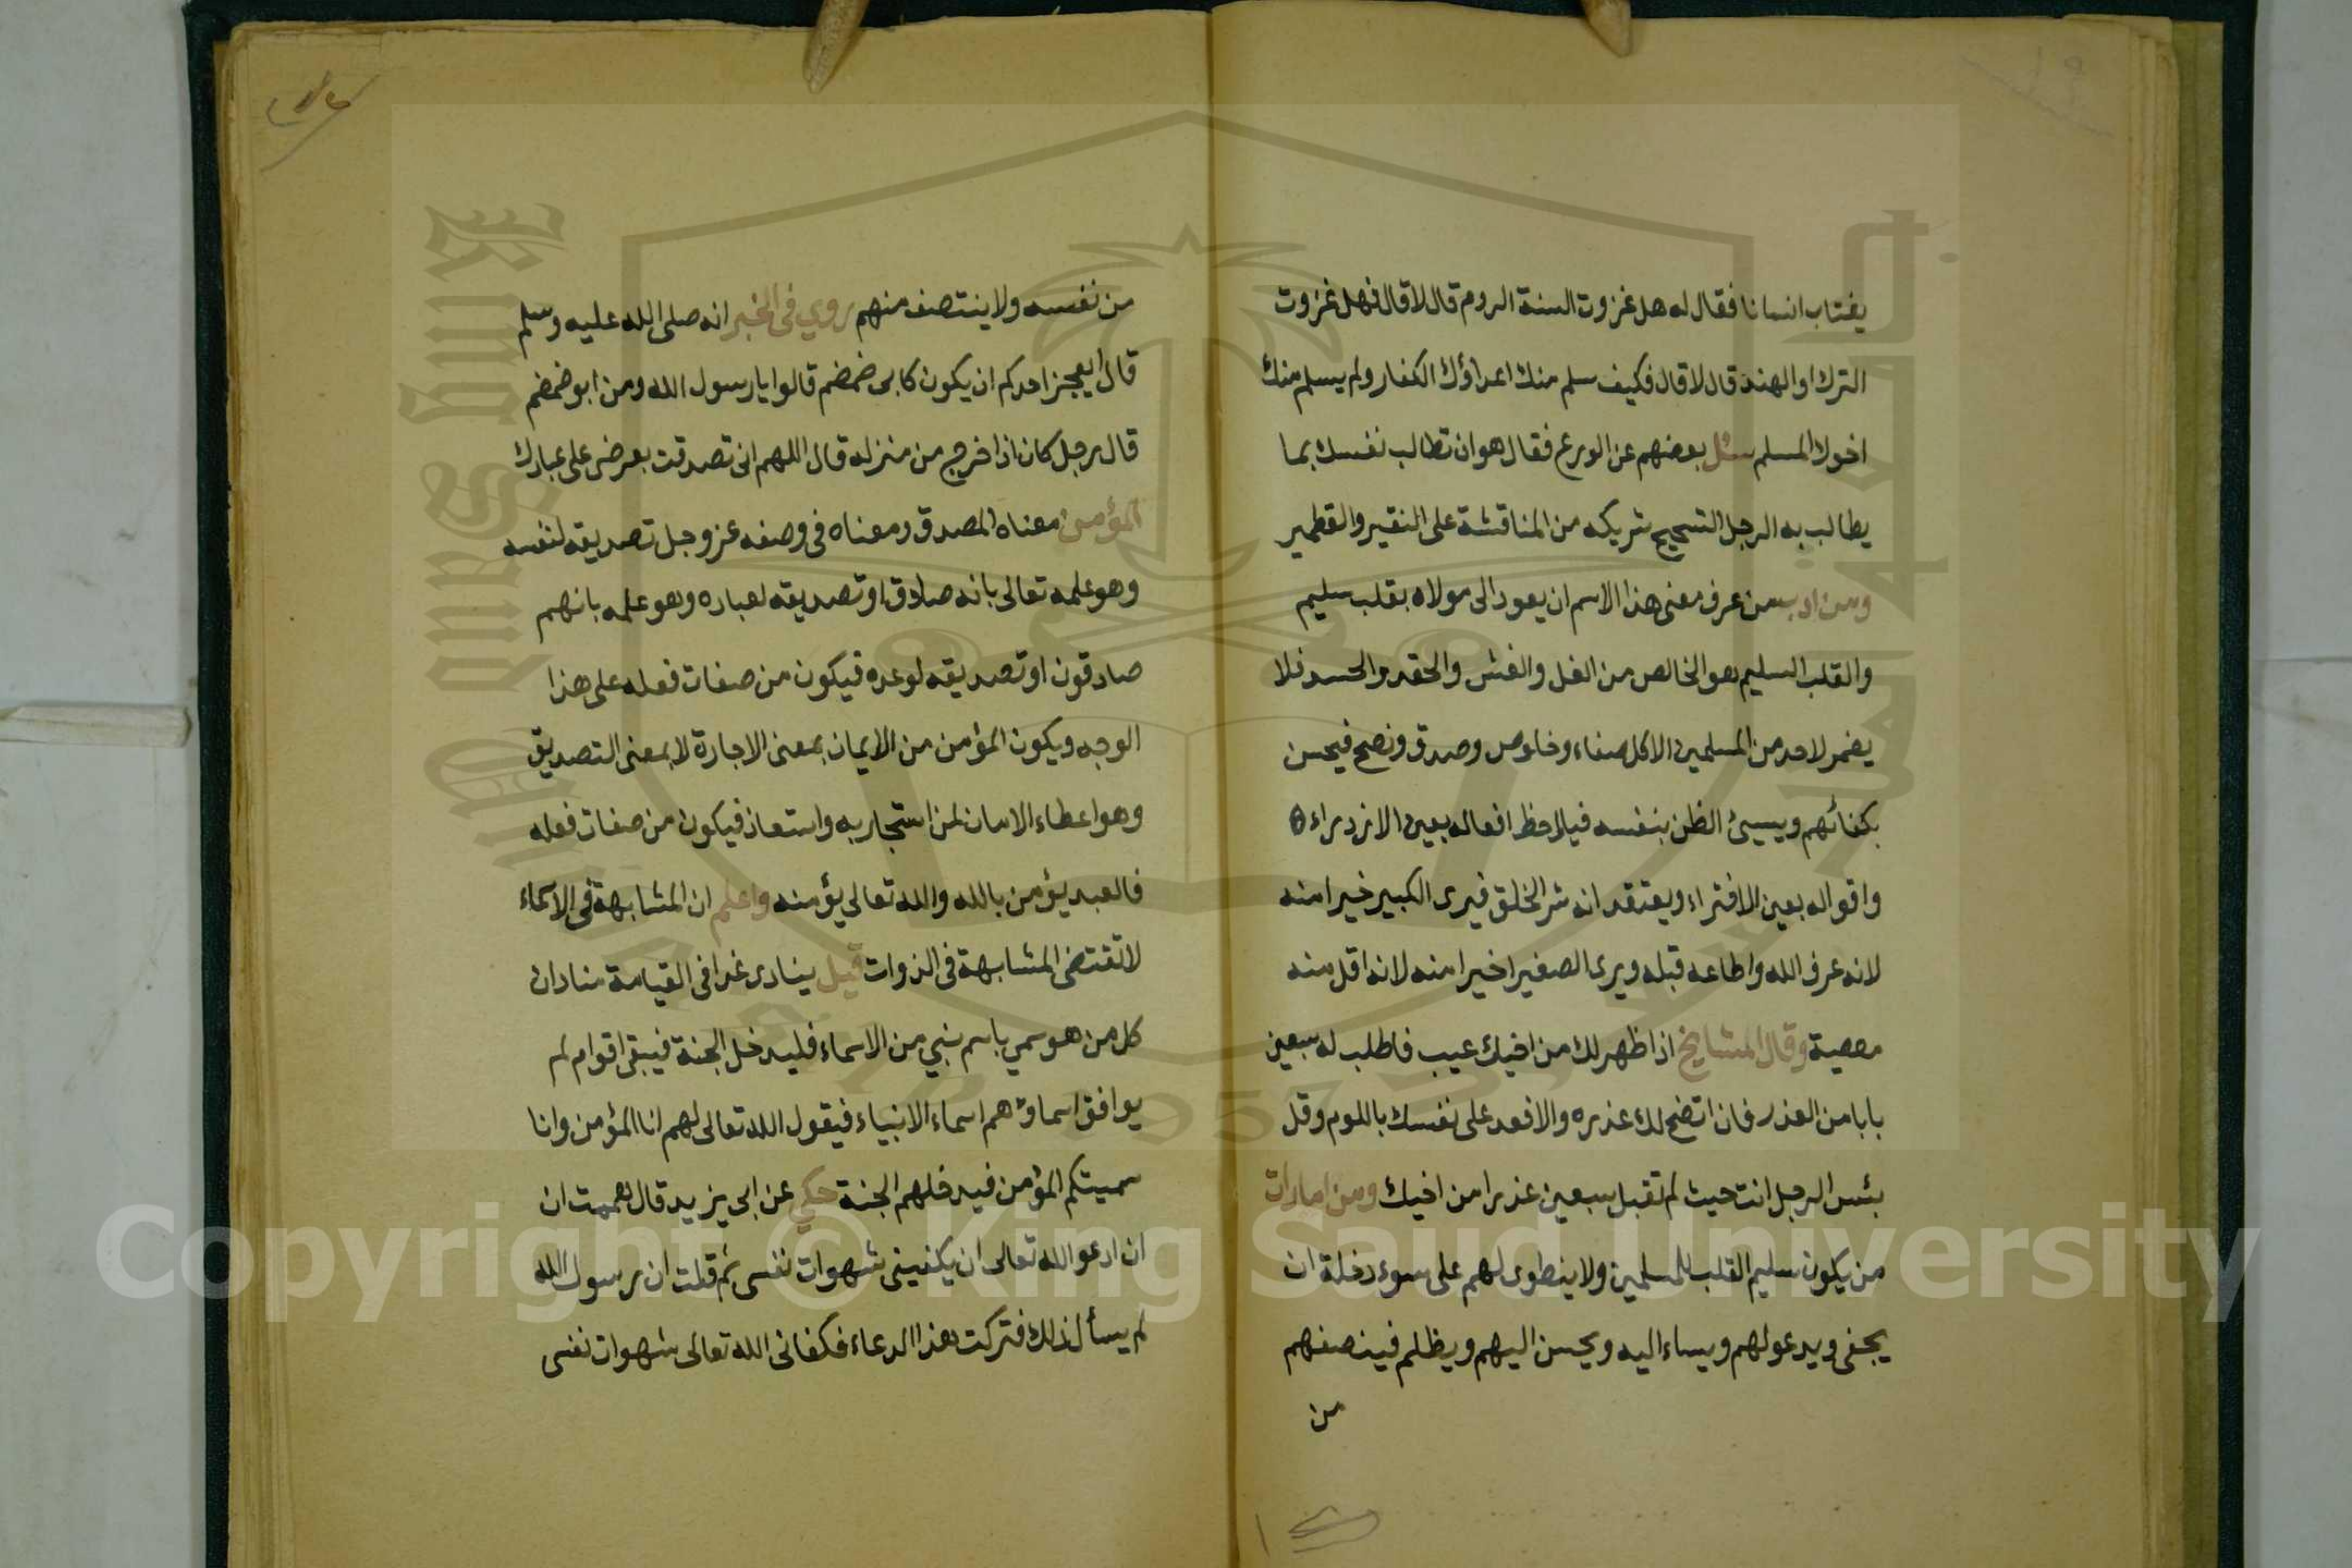 يغتاب انسانا فقال له هل غزوت السنة الروم قال لا قال فهل غزوت
الترك او الهند قال لا قال فكيف سلم منك اعداؤك الكفار ولم يسلم منك
اخوك المسلم سئل بعضهم عن الورع فقال هو ان تطالب نفسك بما
يطالب به الرجل الشحيح شريكه من المناقشة على النقير والقطمير
ومن ادب من عرف معنى هذا الاسم ان يعود الى مولاه بقلب سليم
والقلب السليم هو الخالص من الغل والغش والحقد والحسد فلا
يضمر لاحد من المسلمين الا كل صفاء وخلوص وصدق ونصح فيحسن
بكفائهم ويسيئ الظن بنفسه فيلاحظ افعاله بعين الازدراء
واقواله بعين الافتراء ويعتقد انه شر الخلق فيرى الكبير خيرا منه
لانه عرف الله واطاعه قبله ويرى الصغير اخيرا منه لانه اقل منه
معصية وقال المشايخ اذا ظهر لك من اخيك عيب فاطلب له سبعين
بابا من العذر فان اتضح لك عذره والا فعد على نفسك باللوم وقل
بئس الرجل انت حيث لم تقبل سبعين عذرا من اخيك ومن امارات
من يكون سليم القلب للمسلمين ولا ينطوى لهم على سوء دخلة ان
يجفى ويدعو لهم ويساء اليه ويحسن اليهم ويظلم فينصفهم
من
من نفسه ولا ينتصف منهم روي فى الخبر انه صلى الله عليه وسلم
قال ايعجز احدكم ان يكون كابى ضمضم قالوا يا رسول الله ومن ابو ضمضم
قال رجل كان اذا خرج من منزله قال اللهم انى تصدقت بعرضى على عبادك
المؤمن معناه المصدق ومعناه فى وصفه عز وجل تصديقه لنفسه
وهو علمه تعالى بانه صادق او تصديقه لعباده وهو علمه بانهم
صادقون او تصديقه لوعده فيكون من صفات فعله على هذا
الوجه ويكون المؤمن من الايمان بمعنى الاجارة لا بمعنى التصديق
وهو اعطاء الامان لمن استجار به واستعاذ فيكون من صفات فعله
فالعبد يؤمن بالله والله تعالى يؤمنه واعلم ان المشابهة فى الاسماء
لا تقتضى المشابهة فى الذوات قيل ينادى غدا فى القيامة منادان
كل من هو سمي باسم نبي من الاسماء فليدخل الجنة فيبقى اقوام لم
يوافق اسماؤهم اسماء الانبياء فيقول الله تعالى لهم انا المؤمن وانا
سميتكم المؤمن فيدخلهم الجنة حكي عن ابى يزيد قال هممت ان
ان ادعو الله تعالى ان يكفينى شهوات نفسى ثم قلت ان رسول الله
لم يسأل ذلك فتركت هذا الدعاء فكفانى الله تعالى شهوات نفسى
Copyright © King Saud University